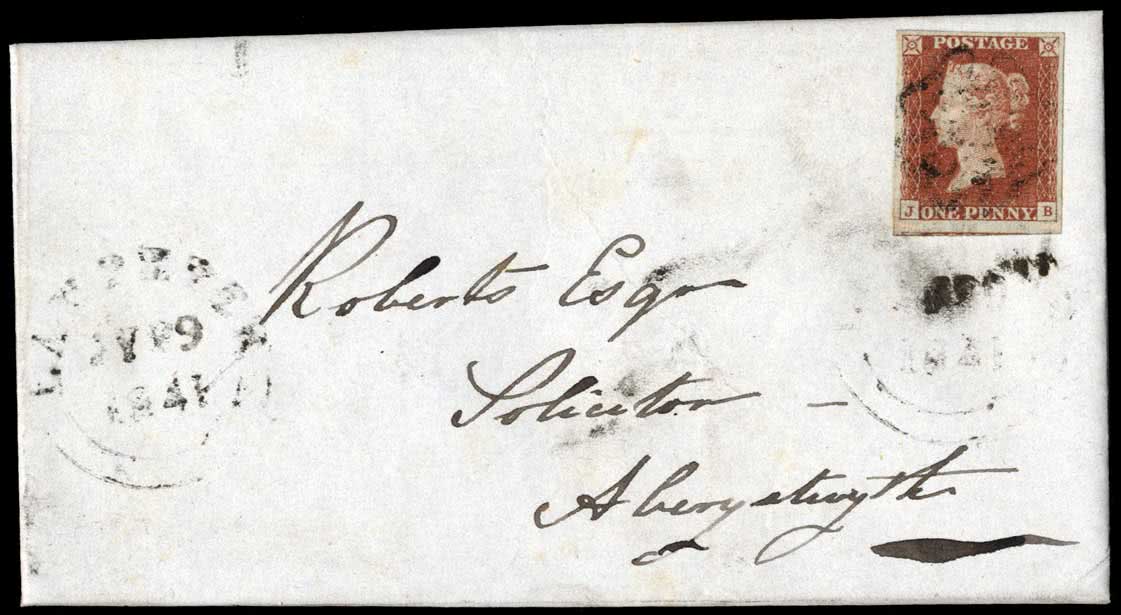 POSTAGE
J ONE PENNY B
Roberts Esqr
Solicitor
Aberystwyth
1841
1841